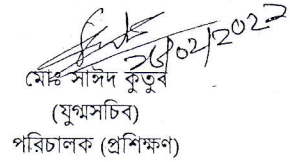 26/02/2022
মোঃ সাঈদ কুতুব
(যুগ্মসচিব)
পরিচালক (প্রশিক্ষণ)